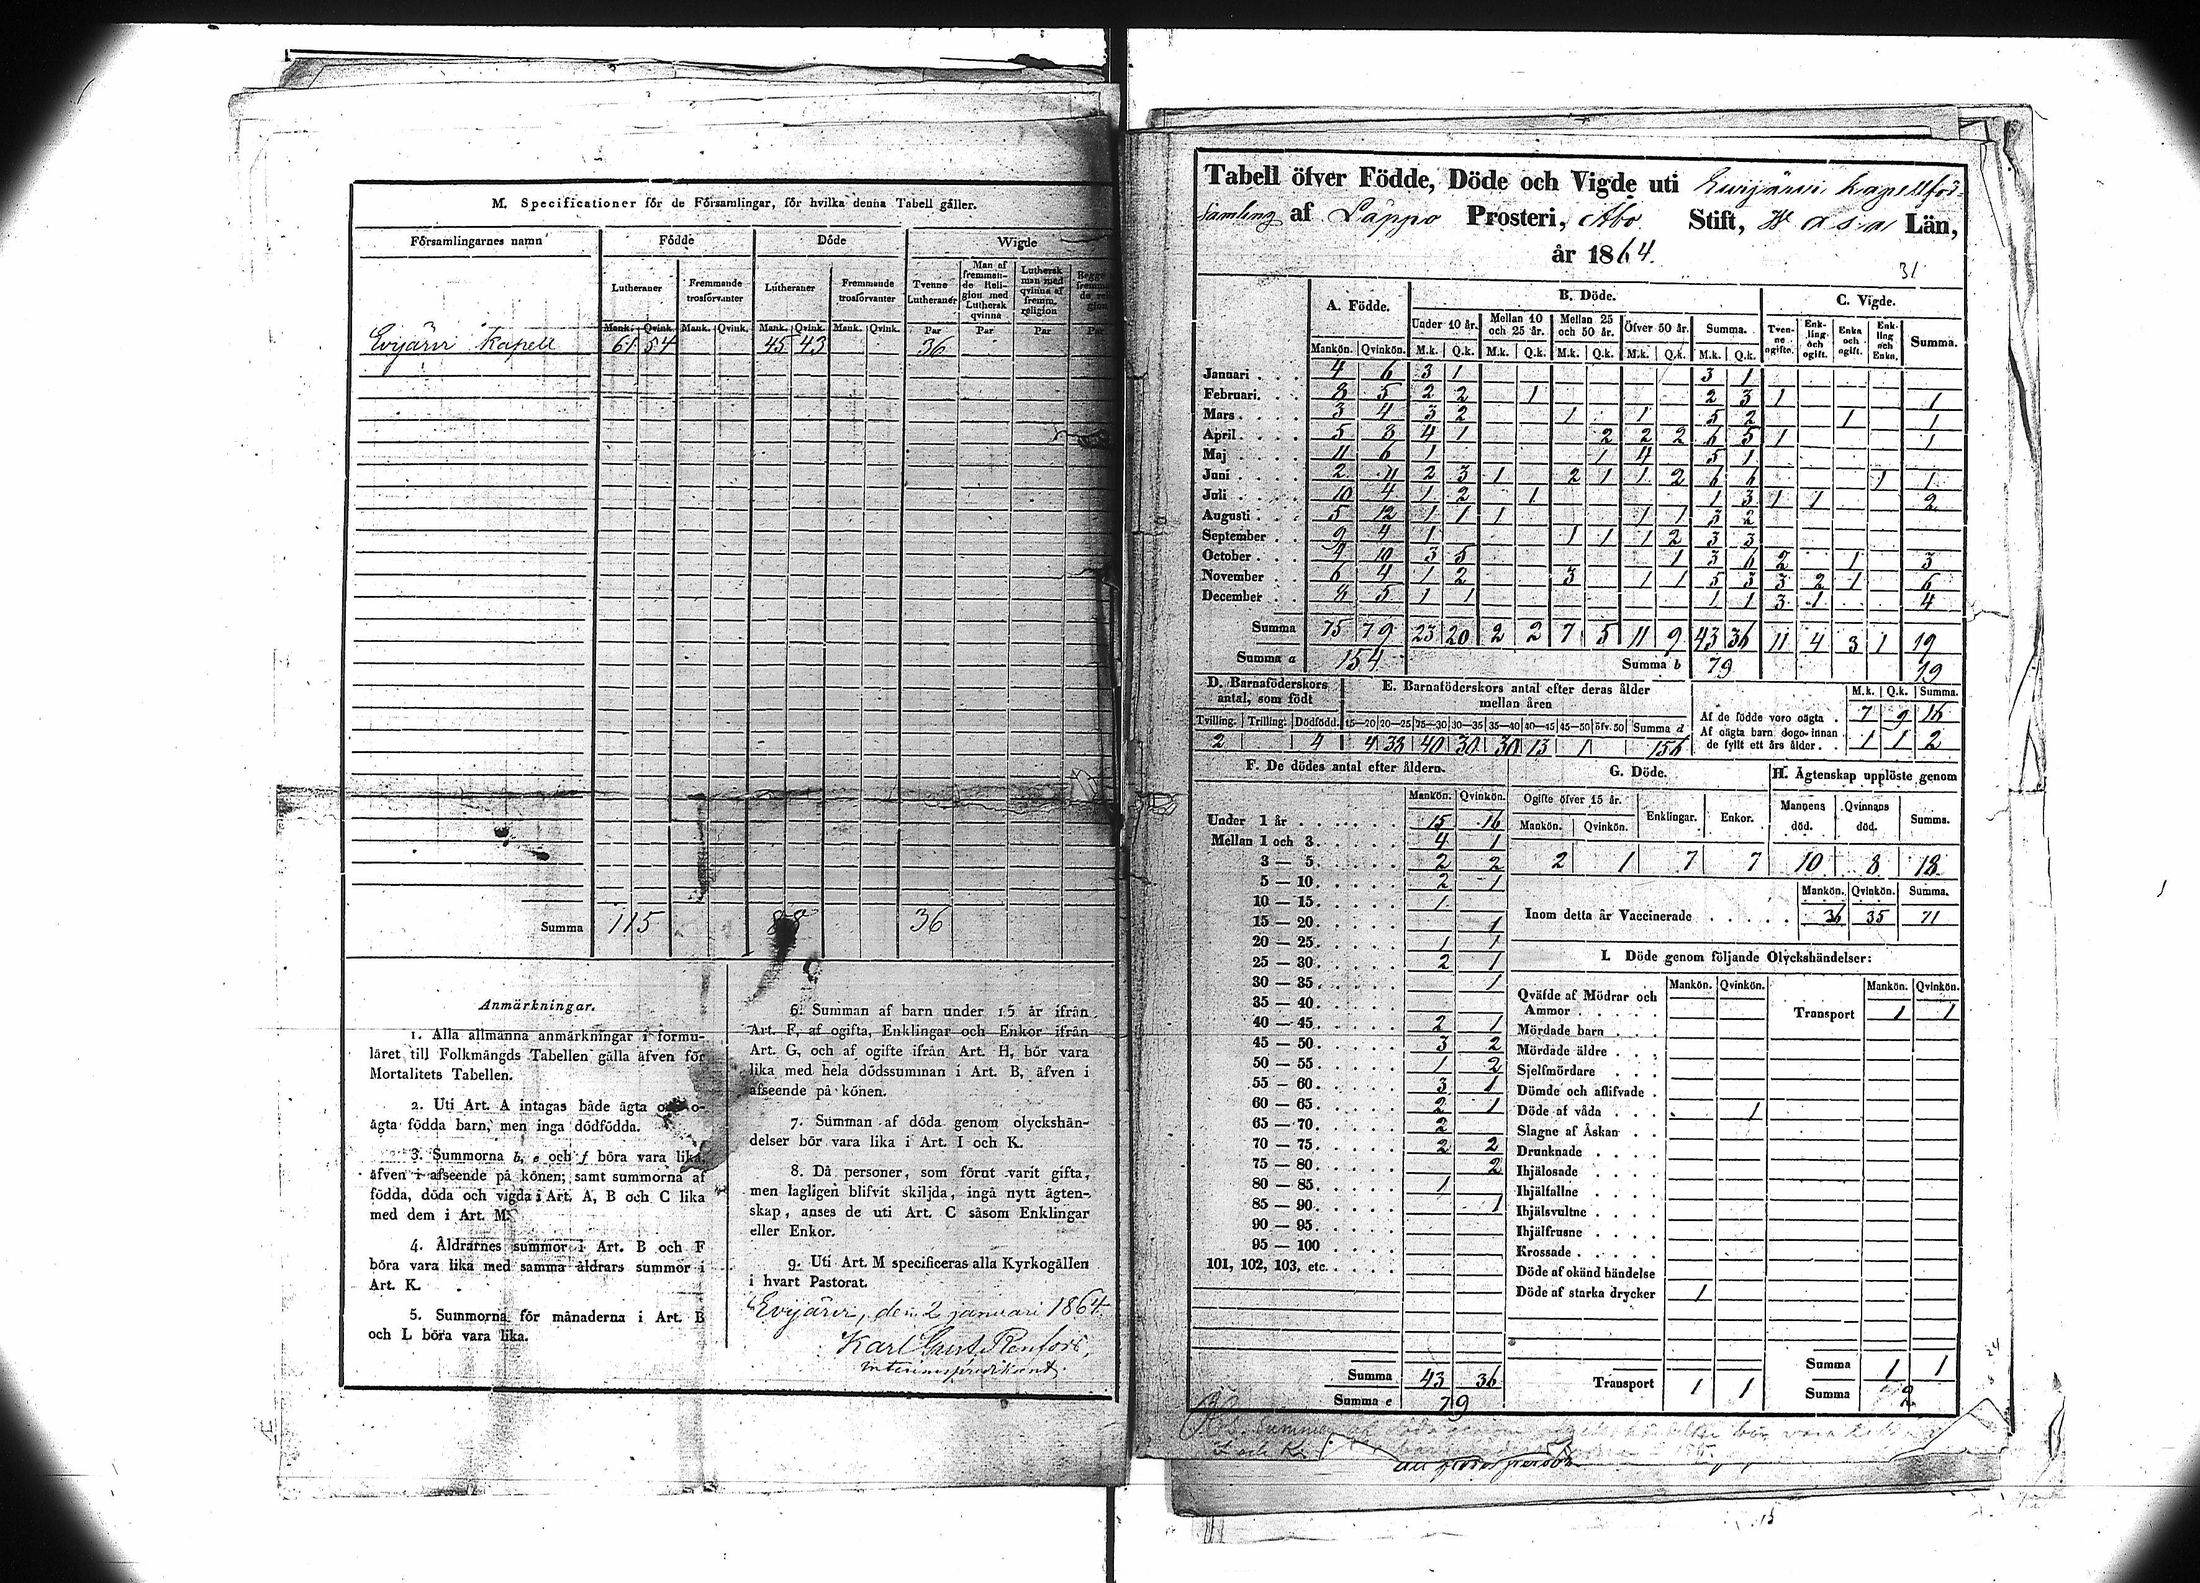 M. Specificationer för de Församlingar, för hvilka denna Tabell gäller.
Församlingarnes namn Födde Döde Wigde
Lutheraner Fremmande trosförvanter Lutheraner Fremmande trosförvanter Tvenne Lutheraner Man af fremman- de Reli- gion med Luthersk qvinna Luthersk man med qvinna af fremm. religion
Mank. Qvink. Mank. Qvink. Mank. Qvink. Mank. Qvink. Par Par Par Par
Evijärvi Kapell 61 54 45 43 36
Summa 115 88 36
Anmärkningar.
1. Alla allmänna anmärkningar i formu-
läret till Folkmängds Tabellen gälla äfven för
Mortalitets Tabellen.
2. Uti Art. A intagas både ägta och o-
ägta födda barn, men inga dödfödda.
3. Summorna b, e och f böra vara lika,
äfven i afseende på könen; samt summorna af
födda, döda och vigda i Art. A, B och C lika
med dem i Art. M.
4. Åldrarnes summor i Art. B och F
böra vara lika med samma åldrars summor i
Art. K.
5. Summorna för månaderna i Art. B
och L böra vara lika.
6. Summan af barn under 15 år ifrån
Art. F, af ogifta, Enklingar och Enkor ifrån
Art. G, och af ogifte ifrån Art. H, bör vara
lika med hela dödssumman i Art. B, äfven i
afseende på könen.
7. Summan af döda genom olyckshän-
delser bör vara lika i Art. I och K.
8. Då personer, som förut varit gifta,
men lagligen blifvit skiljda, ingå nytt ägten-
skap, anses de uti Art. C såsom Enklingar
eller Enkor.
9. Uti Art. M specificeras alla Kyrkogällen
i hvart Pastorat.
Evijärvi, den 2 januari 1864
Karl Gust. Renfors,
Tabell öfver Födde, Döde och Vigde uti Ewijärwi kapellför-
samling af Lappo Prosteri, Åbo Stift, Wasa Län,
år 1864.
31
A. Födde. B. Döde. C. Vigde.
Under 10 år. Mellan 10 och 25 år. Mellan 25 och 50 år. Öfver 50 år. Summa. Tven- ne ogifte. Enk- ling och ogift. Enka och ogift. Enk- ling och Enka. Summa.
Mankön. Qvinkön. M.k. Q.k. M.k. Q.k. M.k. Q.k. M.k. Q.k. M.k. Q.k.
Januari 4 6 3 1 3 1
Februari 8 5 2 2 1 2 3 1 1
Mars 3 4 3 2 1 1 5 2 1 1
April 5 8 4 1 2 2 2 6 5 1 1
Maj 11 6 1 1 4 5 1
Juni 2 11 2 3 1 2 1 1 2 6 6 1 1
Juli 10 4 1 2 1 1 3 1 1 2
Augusti 5 12 1 1 1 1 1 3 2
September 9 4 1 1 1 1 2 3 3
October 4 10 3 5 1 3 6 2 1 3
November 6 4 1 2 3 1 1 5 3 3 2 1 6
December 8 5 1 1 1 1 3 1 4
Summa 75 79 23 20 2 2 7 5 11 9 43 36 11 4 3 1 19
Summa a 154 Summa b 79 19
D. Barnaföderskors antal, som födt
Tvilling. Trilling. Dödfödd.
2 4
E. Barnaföderskors antal efter deras ålder mellan åren
15—20 20—25 25—30 30—35 35—40 40—45 45—50 öfv. 50 Summa d
4 33 40 30 30 13 1 156
M.k. Q.k. Summa.
Af de födde voro oägta 7 9 16
Af oägta barn dogo innan
de fyllt ett års ålder 1 1 2
F. De dödes antal efter åldern.
Mankön. Qvinkön.
Under 1 år 15 16
Mellan 1 och 3 4 1
3 — 5 2 2
5 — 10 2 1
10 — 15 1
15 — 20 1
20 — 25 1 1
25 — 30 2 1
30 — 35 1
35 — 40
40 — 45 2 1
45 — 50 3 2
50 — 55 1 2
55 — 60 3 1
60 — 65 2 1
65 — 70 2
70 — 75 2 2
75 — 80 2
80 — 85 1
85 — 90 1
90 — 95
95 — 100
101, 102, 103, etc.
Summa 43 36
Summa e 79
G. Döde.
Ogifte öfver 15 år. Enklingar. Enkor.
Mankön. Qvinkön.
2 1 7 7
H. Ägtenskap upplöste genom
Mannens död. Qvinnans död. Summa.
10 8 18
Mankön. Qvinkön. Summa.
Inom detta år Vaccinerade 36 35 71
I. Döde genom följande Olyckshändelser:
Mankön. Qvinkön. Mankön. Qvinkön.
Qväfde af Mödrar och
Ammor
Transport 1 1
Mördade barn
Mördade äldre
Sjelfmördare
Dömde och aflifvade
Döde af våda 1
Slagne af Åskan
Drunknade
Ihjälosade
Ihjälfallne
Ihjälsvultne
Ihjälfrusne
Krossade
Döde af okänd händelse
Döde af starka drycker 1
Summa 1 1
Transport 1 1
Summa 2